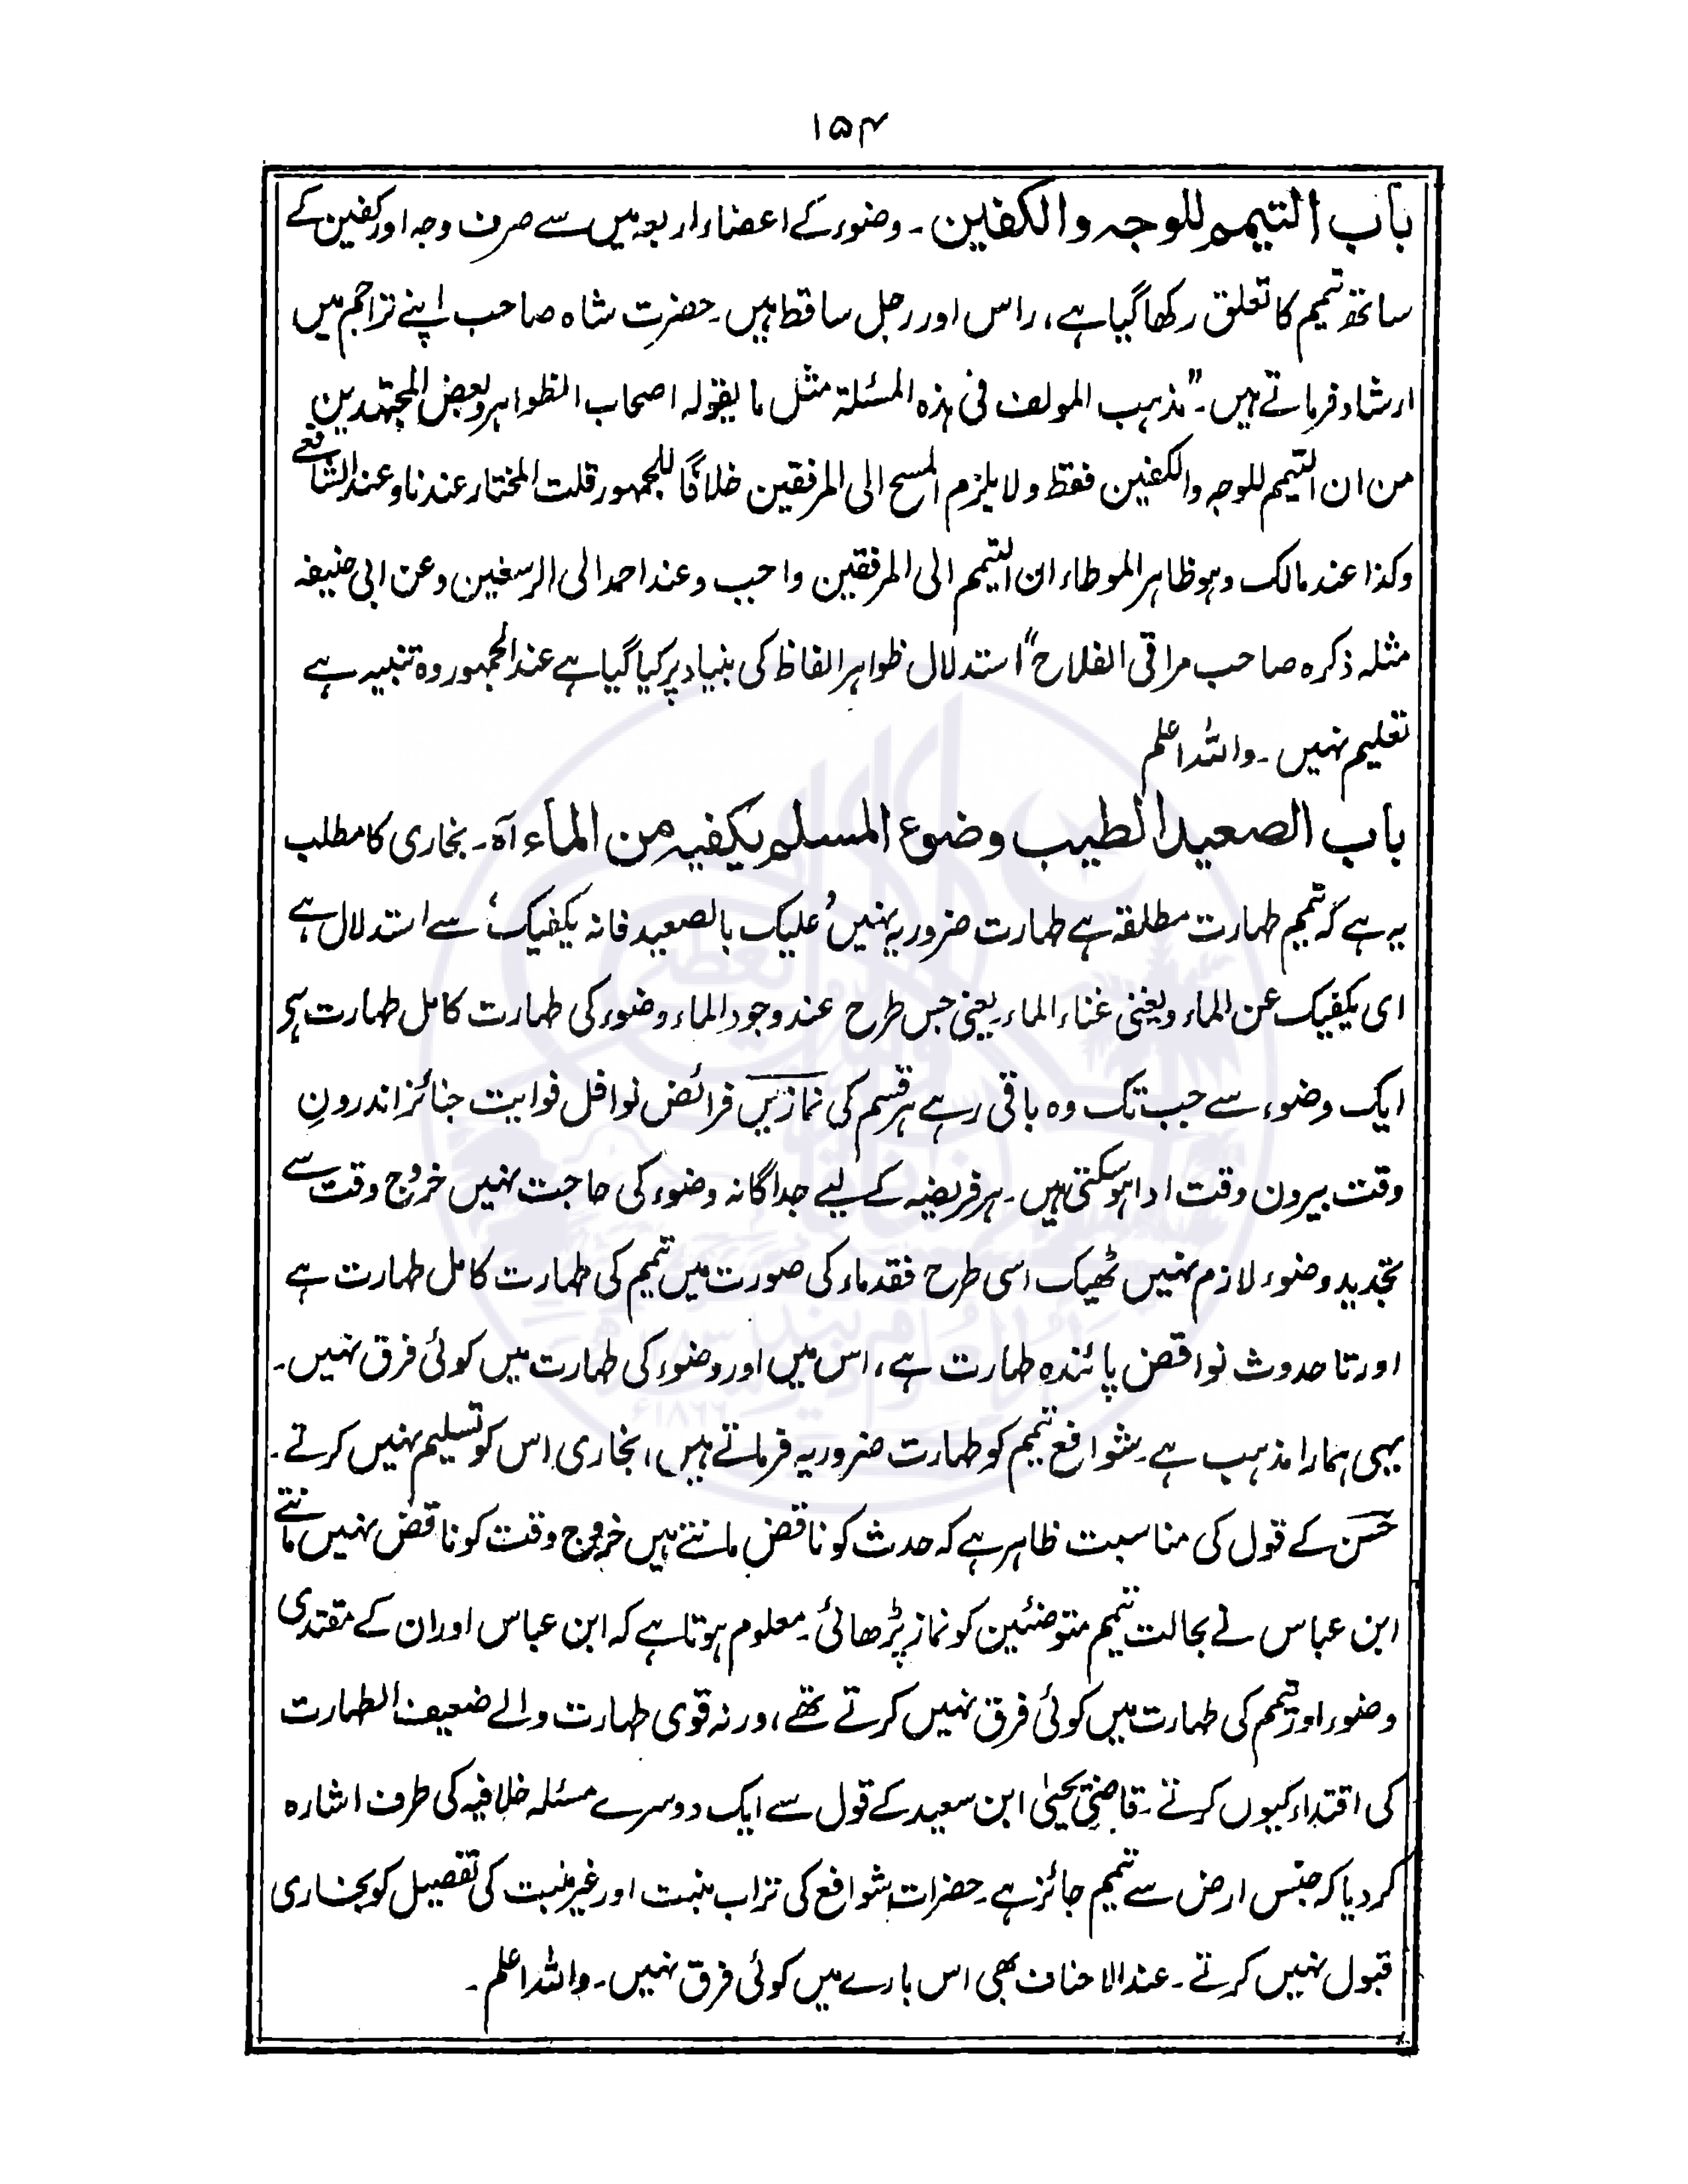 ۱۵۴
باب التیمم للوجہ والکفین۔ وضوء کے اعضاء اربعہ میں سے صرف وجہ اور کفین کے
ساتھ تیمم کا تعلق رکھا گیا ہے، راس اور رجل ساقط ہیں۔ حضرت شاہ صاحب اپنے تراجم میں
ارشاد فرماتے ہیں۔ ”مذہب المولف فی ہذہ المسئلۃ مثل ما یقولہ اصحاب الظواہر وبعض المجتہدین
من ان التیمم للوجہ والکفین فقط ولا یلزم المسح الی المرفقین خلافًا للجمہور قلت المختار عندنا وعند الشافعے
وکذا عند مالک وہو ظاہر الموطاء ان التیمم الی المرفقین واجب وعند احمد الی الرسغین وعن ابی حنیفہ
مثلہ ذکرہ صاحب مراقی الفلاح“ استدلال ظواہر الفاظ کی بنیاد پر کیا گیا ہے عند الجمہور وہ تنبیہ ہے
تعلیم نہیں۔ واللہ اعلم
باب الصعید الطیب وضوء المسلم یکفیہ من الماء آہ۔ بخاری کا مطلب
یہ ہے کہ تیمم طہارت مطلقہ ہے طہارت ضروریہ نہیں ’علیک بالصعید فانہ یکفیک‘ سے استدلال ہے
ای یکفیک عن الماء ویغنی غناء الماء یعنی جس طرح عند وجود الماء وضوء کی طہارت کامل طہارت ہے
ایک وضوء سے جب تک وہ باقی رہے ہر قسم کی نمازیں فرائض نوافل فوایت جنائز اندرونِ
وقت بیرون وقت ادا ہو سکتی ہیں۔ ہر فریضہ کے لیے جداگانہ وضوء کی حاجت نہیں خروج وقت سے
تجدید وضوء لازم نہیں ٹھیک اسی طرح فقد ماء کی صورت میں تیمم کی طہارت کامل طہارت ہے
اور تا حدوث نواقض پائندہ طہارت ہے، اس میں اور وضوء کی طہارت میں کوئی فرق نہیں۔
یہی ہمارا مذہب ہے۔ شوافع تیمم کو طہارت ضروریہ فرماتے ہیں، بخاری اس کو تسلیم نہیں کرتے۔
حسن کے قول کی مناسبت ظاہر ہے کہ حدث کو ناقض مانتے ہیں خروج وقت کو ناقض نہیں مانتے
ابن عباس نے بحالت تیمم متوضئین کو نماز پڑھائی۔ معلوم ہوتا ہے کہ ابن عباس اور ان کے مقتدی
وضوء اور تیمم کی طہارت میں کوئی فرق نہیں کرتے تھے، ورنہ قوی طہارت والے ضعیف الطہارت
کی اقتداء کیوں کرتے۔ قاضی یحییٰ ابن سعید کے قول سے ایک دوسرے مسئلہ خلافیہ کی طرف اشارہ
کر دیا کہ جنس ارض سے تیمم جائز ہے۔ حضرات شوافع کی تراب منبت اور غیر منبت کی تفصیل کو بخاری
قبول نہیں کرتے۔ عند الاحناف بھی اس بارے میں کوئی فرق نہیں۔ واللہ اعلم۔